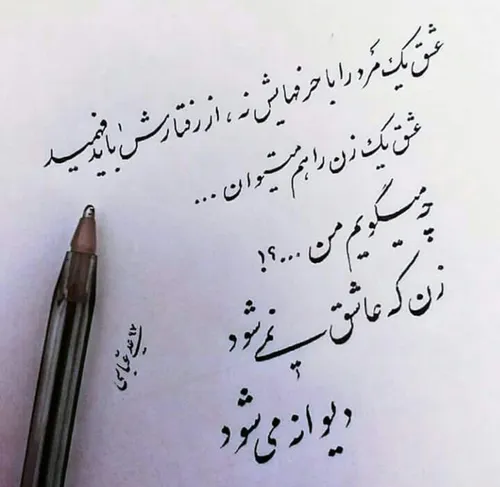 عشق یک مرد را با حرفهایش نه ، از رفتارش باید فهمید
عشق یک زن را هم میتوان ...
چه میگویم من ...؟!
زن که عاشق نمی شود
دیوانه می شود
عباسی